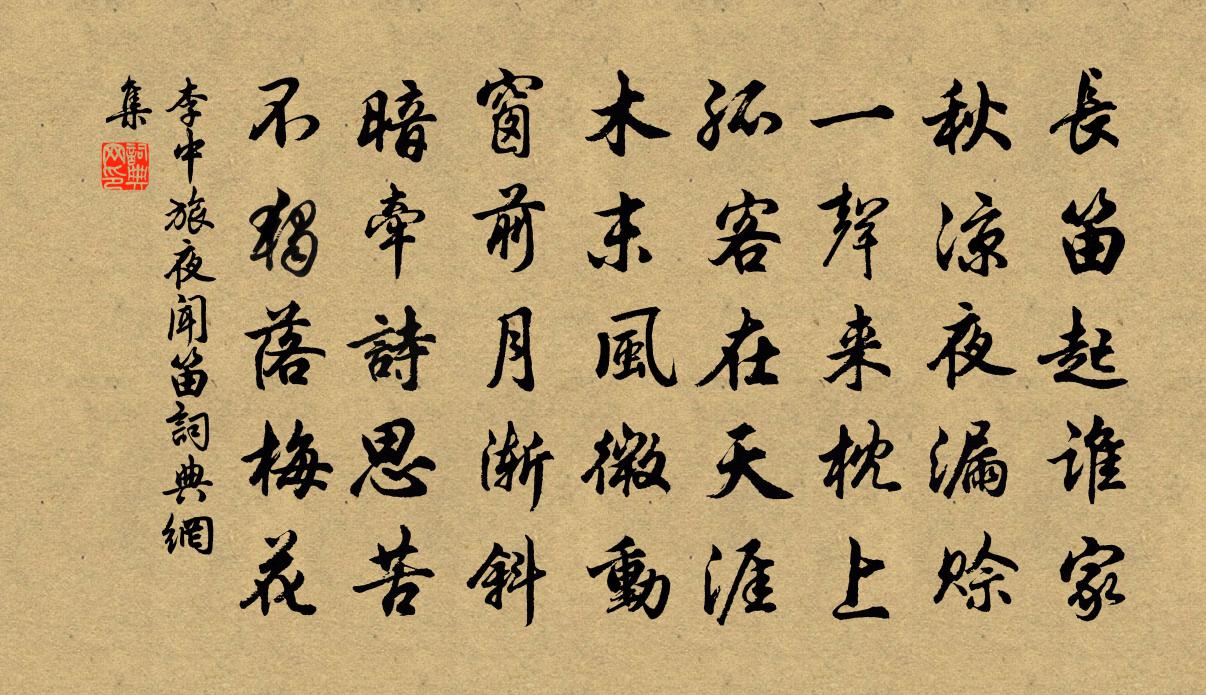 長笛起誰家
秋涼夜漏賒
一聲来枕上
孤客在天涯
木末風微動
窗前月渐斜
暗牽詩思苦
不獨落梅花
李中旅夜聞笛詞典網
集
詞典
网印